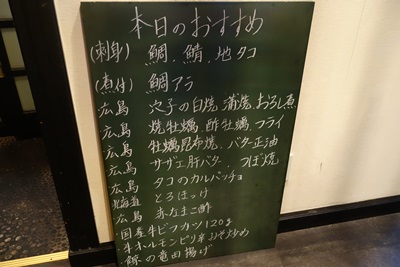 本日のおすすめ
(刺身) 鯛、鯖、地タコ
(煮付) 鯛アラ
広島 穴子の白焼、蒲焼、おろし煮
広島 焼牡蠣、酢牡蠣、フライ
広島 牡蠣昆布焼、バター正油
広島 サザエ肝バター、つぼ焼
広島 タコのカルパッチョ
北海道 とろほっけ
広島 赤なまこ酢
・国産牛ビフカツ120g
・牛ホルモンピリ辛みそ炒め
の竜田揚げ